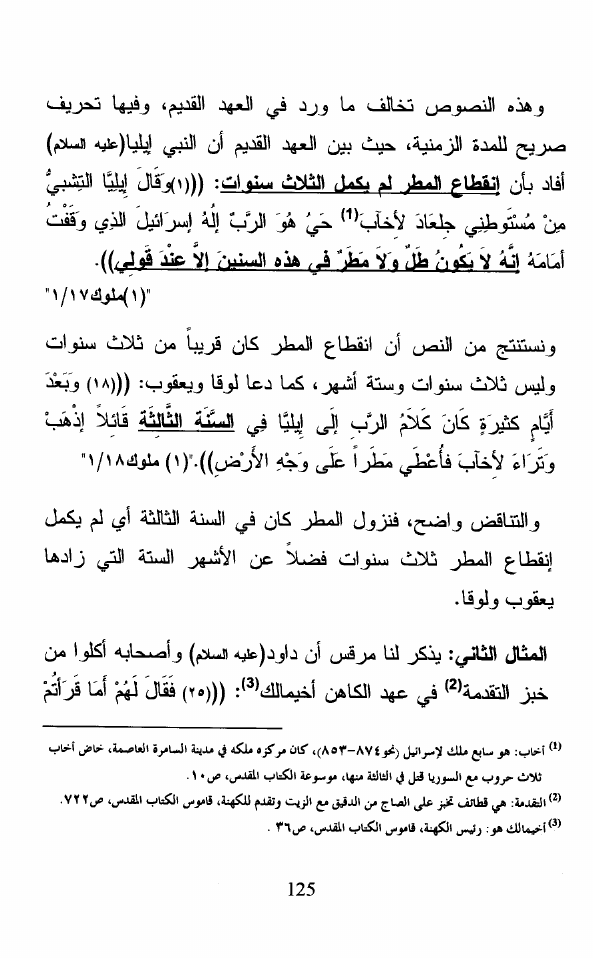 وهذه النصوص تخالف ما ورد في العهد القديم، وفيها تحريف
صريح للمدة الزمنية، حيث بين العهد القديم أن النبي إيليا(عليه السلام)
أفاد بأن إنقطاع المطر لم يكمل الثلاث سنوات: ((١)وَقَالَ إِيلِيَّا التِّشْبِيُّ
مِنْ مُسْتَوطِنِي جِلعَادَ لأخآبَ(1) حَيُ هُوَ الرَّبٌ إلَهُ إسرَائيلَ الذي وَقَفْتُ
أمَامَهُ إنَّهُ لاَ يَكُونُ طَلٌ وَلاَ مَطَرٌ في هذه السنينَ إلاَّ عنْدَ قَولي)).
"(١)ملوك١/١٧"
ونستنتج من النص أن انقطاع المطر كان قريباً من ثلاث سنوات
وليس ثلاث سنوات وستة أشهر، كما دعا لوقا ويعقوب: ((١٨) وَبَعْدَ
أيَّامٍ كثيرَةٍ كَانَ كَلاَمُ الرَّبِ إلَى إيليَّا في السَّنَة الثَّالثَة قَائلاً إذْهَبْ
وتَرَاءَ لأخآبَ فأُعْطي مَطَراً عَلَى وَجْه الأرْض)).”(١) ملوك١/١٨"
والتناقض واضح، فنزول المطر كان في السنة الثالثة أي لم يكمل
إنقطاع المطر ثلاث سنوات فضلاً عن الأشهر الستة التي زادها
يعقوب ولوقا.
المثال الثاني: يذكر لنا مرقس أن داود(عليه السلام) وأصحابه أكلوا من
خبز التقدمة(2) في عهد الكاهن أخيمالك(3): ((٢٥) فَقَالَ لَهُمْ أمَا قَرَأتُمْ
(1) أخاب: هو سابع ملك لإسرائيل (نحو ٨٧٤-٨٥٣)، كان مركزه ملكه في مدينة السامرة العاصمة، خاض أخاب
ثلاث حروب مع السوريا قتل في الثالثة منها، موسوعة الكتاب المقدس، ص١٠.
(2) التقدمة: هي قطائف تخبز على الصاج من الدقيق مع الزيت وتقدم للكهنة، قاموس الكتاب المقدس، ص٧٢٢.
(3) أخيمالك هو: رئيس الكهنة، قاموس الكتاب المقدس، ص٣٦ .
125